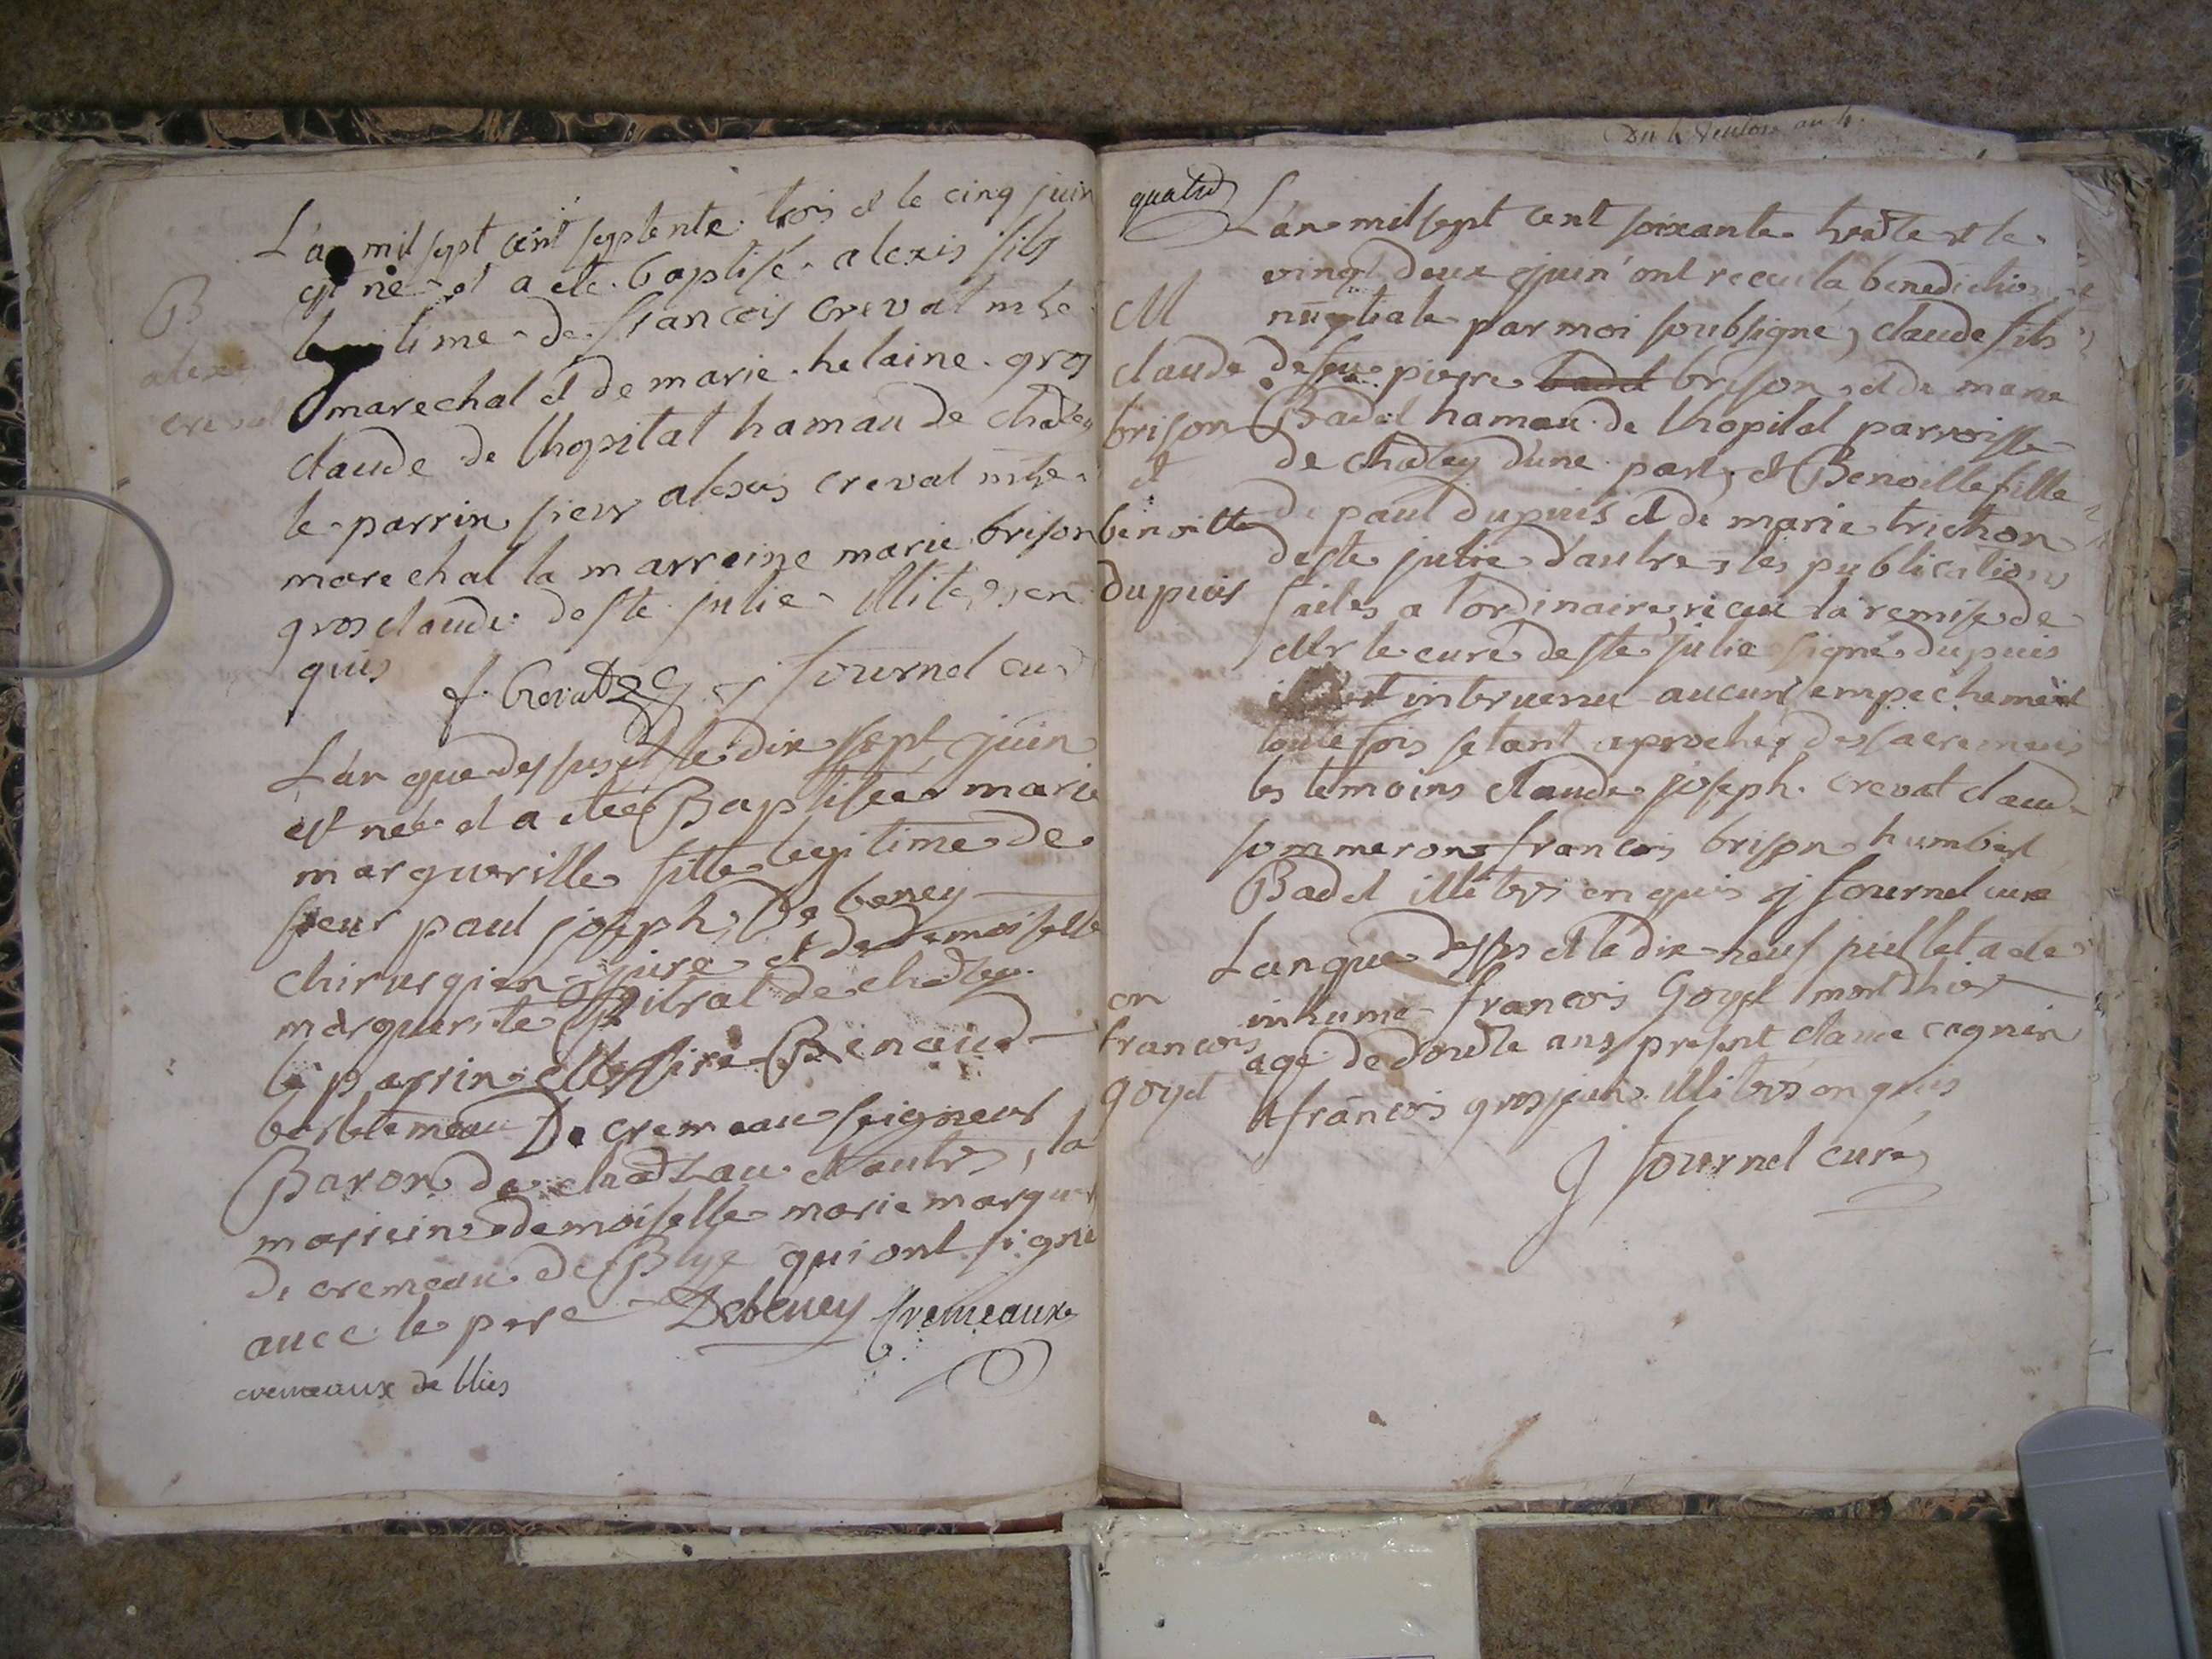 L'an mil sept cent septente trois et le cinq juin
B
est né et a eté baptisé alexis fils
legitime de francois crevat mtre
alexi
marechal et de marie helaine gros
creval
claude de lhopital hamau de chaley
le parrin sieur alexis creval mtre
marechal la marreine marie brison
grosclaude de ste julie illiterés en
quis
f. Crevat
j fournel curé
L'an que dessus et le dix sept juin
est née et a etée Baptisée marie
margueritte fille legitime de
sieur paul joseph De beney
chirurgien juré et de demoiselle
marguerite
de chaley
le parrin Messire Renaud
De cremeau seigneur
Baron de chaZau et autres, la
marreine demoiselle marie margue
de cremeau de Blye qui ont signé
avec le pere Debeney Cremeaux
cremeaux de blies
Du 4
au 4.
quatre
L'an mil sept cent soixante treizte et le
vingt deux juin ont receu la benediction
M
nuptiale par moi soubsigné, claude fils
claude
de feu pierre badel brison et de marie
brison
Badel hamau de lhopital parroisse
et
de chaley d'une part, et Benoitte fille
benoitte
de paul dupuis et de marie trichon
dupuis
de ste julie d'autre, les publications
faites a l'ordinaire, receu la remise de
Mr le curé de ste julie signé dupuis
est intervenu aucun empechement
toutefois setant aprochés des sacremens
les temoins claude joseph crevat claude
sommeron francois brison humbert
Badel illiterés enquis j fournel curé
L'an que dessus et le dix neuf juillet a eté
on
inhumé francois Goyet mort d'hier
francois
agé de doudte ans present claude cognin
goyet
et francois grosjean illiterés enquis
J fournel curé